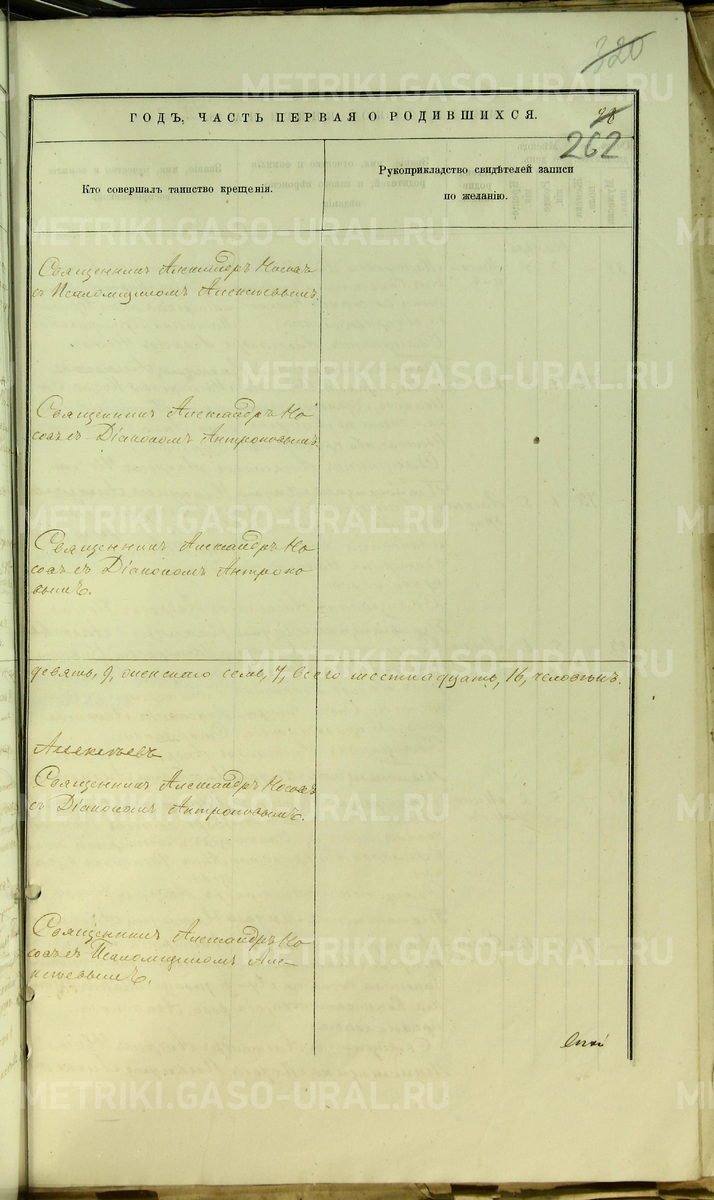 320
ГОДЪ, ЧАСТЬ ПЕРВАЯ О РОДИВШИХСЯ.
28
262
Кто совершалъ таинство крещенія.
Рукоприкладство свидѣтелей записи
по желанію.
Священникъ Александръ Носовъ
съ Псаломщикомъ Алексѣевымъ.
Священникъ Александръ Но
совъ съ Діакономъ Антроповымъ
Священникъ Александръ Но
совъ съ Діакономъ Антропо
вымъ.
девять, 9, женскаго семь, 7, всего шестнадцать, 16, человѣкъ.
Алексѣевъ
Священникъ Александръ Носовъ
съ Діакономъ Антроповымъ.
Священникъ Александръ Но
совъ съ Псаломщикомъ Але-
ксѣевымъ.
METRIKI.GASO-URAL.RU